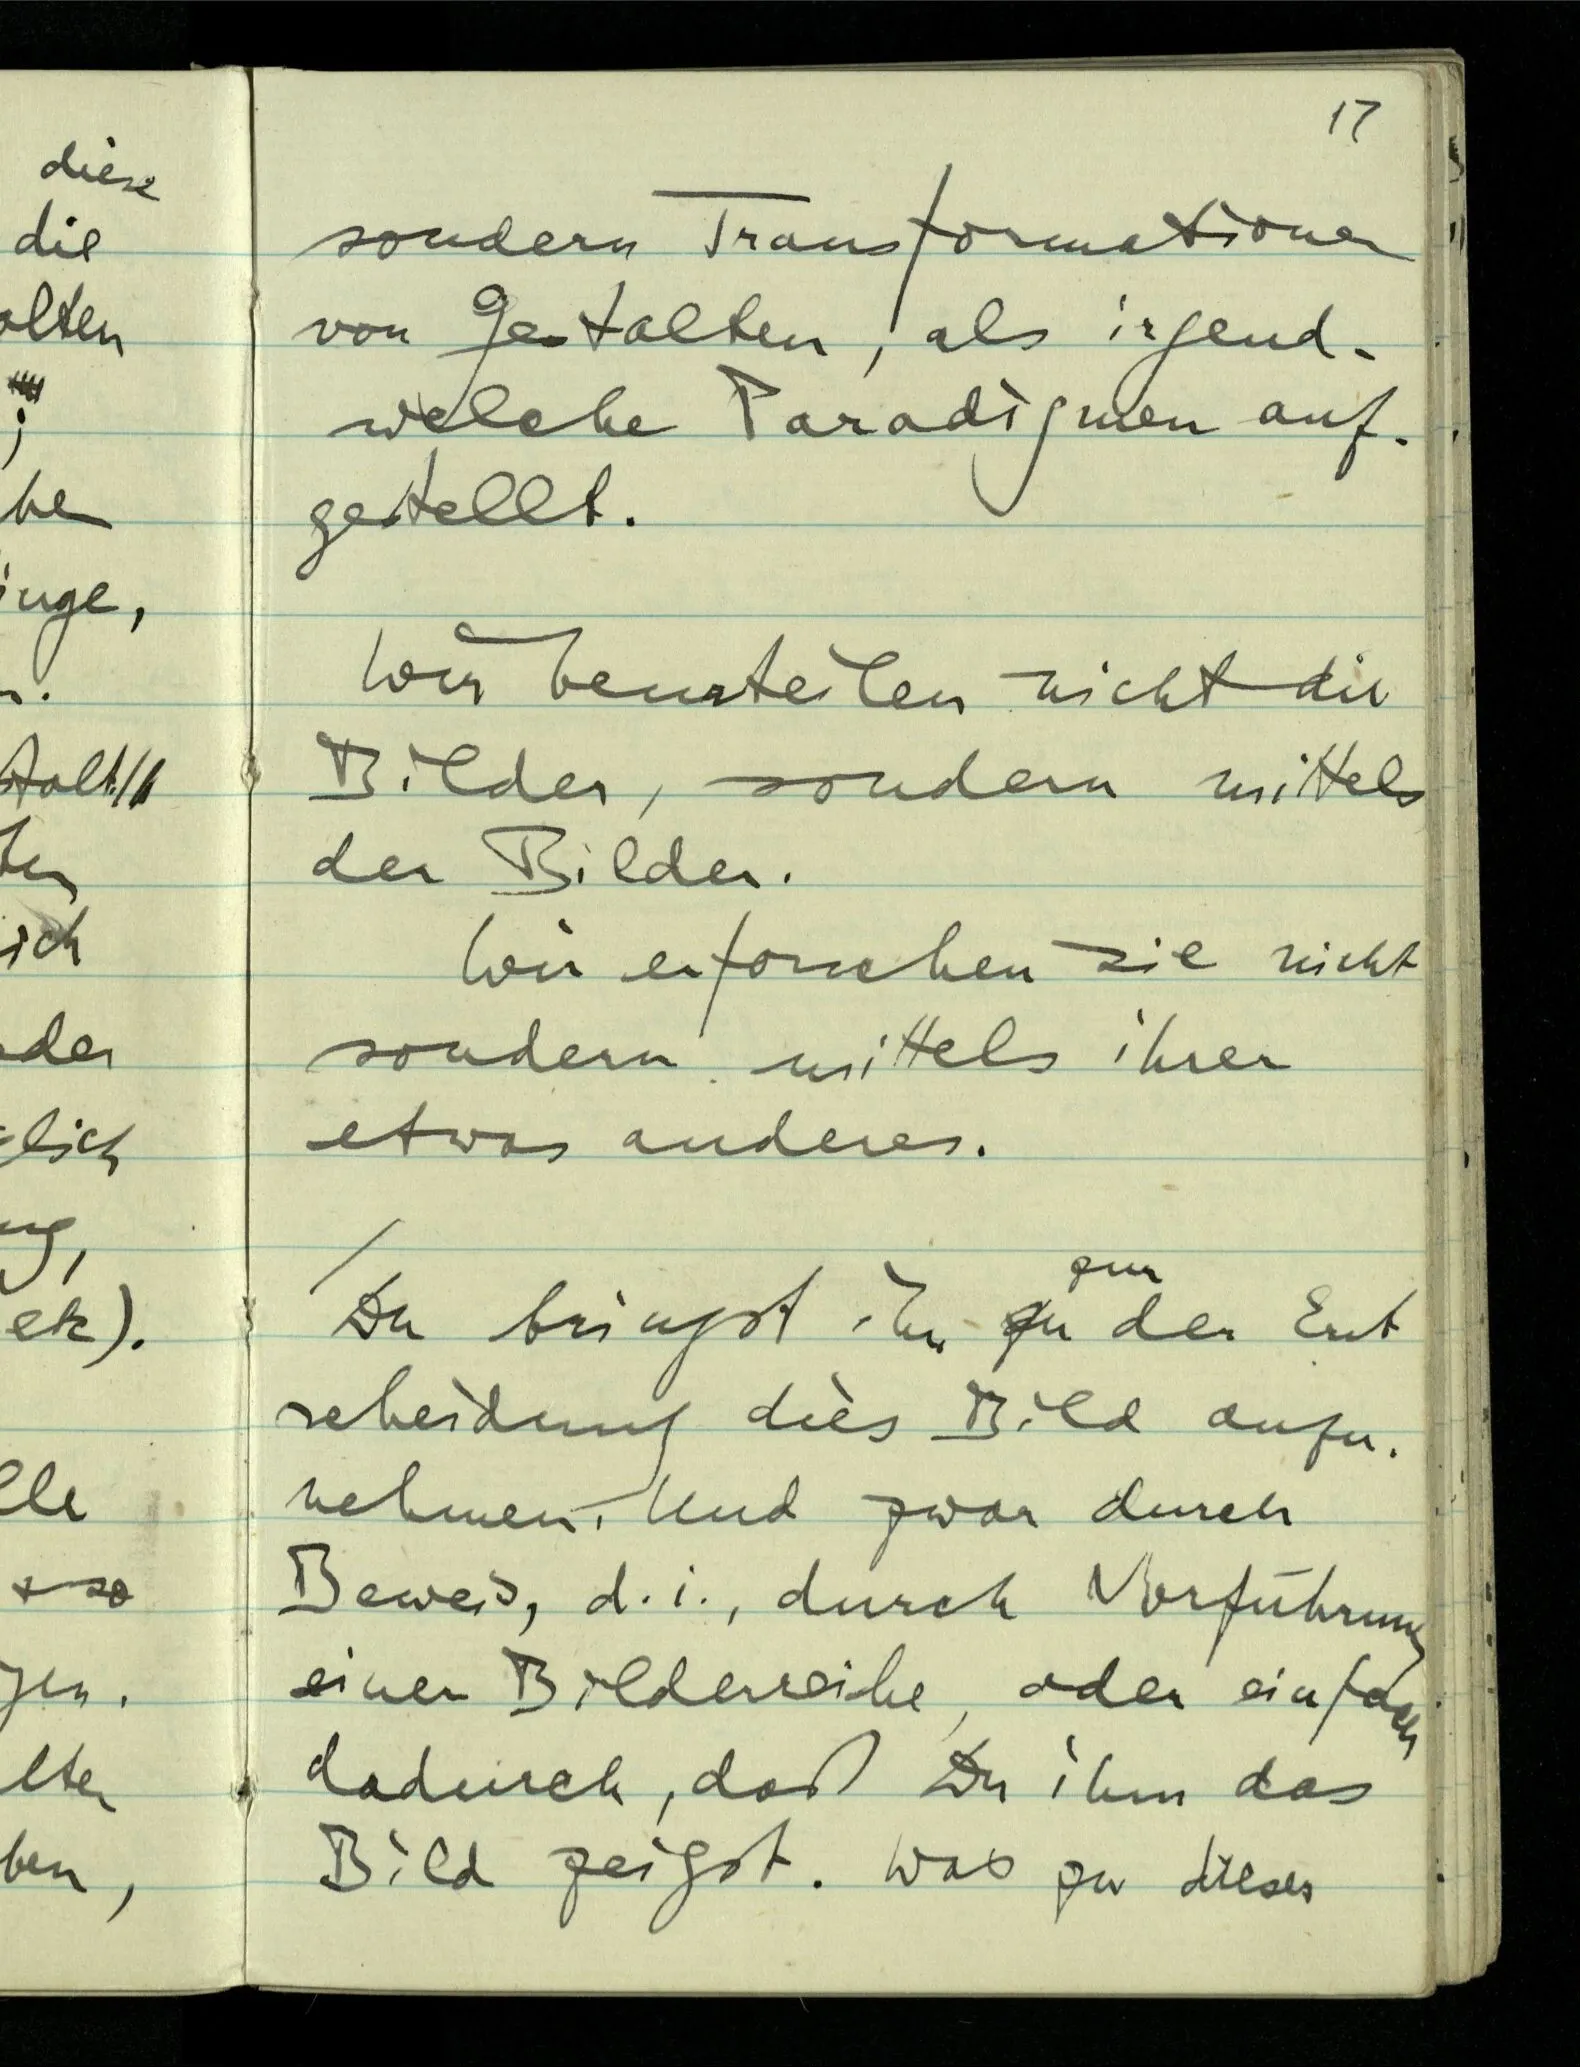 17
diese
die
sondern Transformationen
von Gestalten, als irgend-
welche Paradigmen auf-
gestellt.
inge,
Wir beurteilen nicht die
Bilder, sondern mittels
der Bilder.
ich
Wir erforschen sie nicht
sondern mittels ihrer
etwas anderes.
zur
/Du bringst ihn zu der Ent
scheidung dies Bild anzu-
nehmen. Und zwar durch
Beweis, d.i., durch Vorführung
einer Bilderreihe, oder einfach
dadurch, daß Du ihm das
Bild zeigst. Was zu dieser